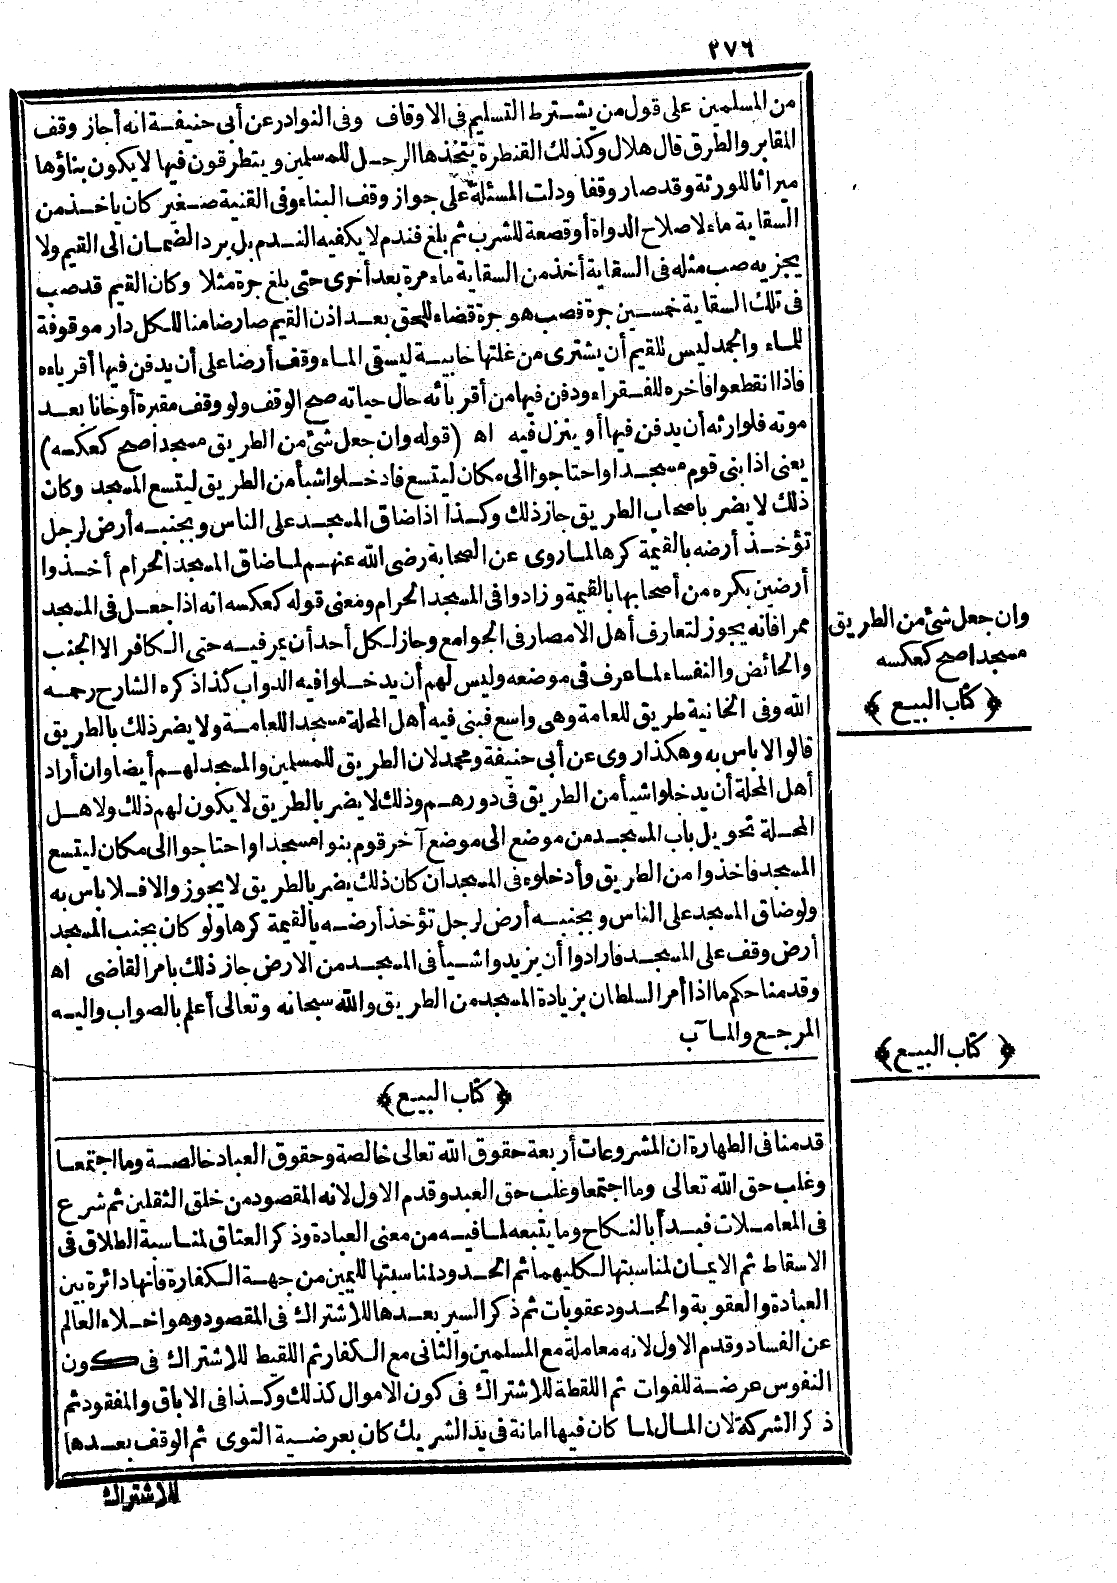 ٢٧٦
من المسلمين على قول من يشترط التسليم فى الاوقاف وفى النوادر عن أبى حنيفة انه أجاز وقف
المقابر والطرق قال هلال وكذلك القنطرة يتخذها الرجل للمسلمين ويتطرقون فيها لا يكون بناؤها
ميراثا للورثة وقد صار وقفا ودلت المسئلة على جواز وقف البناء وفى القنية صغير كان ياخذ من
السقاية ماء لاصلاح الدواة أو قصعة للشرب ثم بلغ فندم لا يكفيه الندم بل يرد الضمان الى القيم ولا
يجزيه صب مثله فى السقاية أخذ من السقاية ماء مرة بعد أخرى حتى بلغ جرة مثلا وكان القيم قد صب
فى تلك السقاية خمسين جرة فصب هو جرة قضاء للحق بعد اذن القيم صار ضامنا للكل دار موقوفة
للماء والجمد ليس للقيم أن يشترى من غلتها خابية ليسقى الماء وقف أرضا على أن يدفن فيها أقرباءه
فاذا انقطعوا فاخره للفقراء ودفن فيها من أقربائه حال حياته صح الوقف ولو وقف مقبرة أو خانا بعد
موته فلوارثه أن يدفن فيها أو ينزل فيه اه (قوله وان جعل شئ من الطريق مسجدا صح كعكسه)
يعنى اذا بنى قوم مسجدا واحتاجوا الى مكان ليتسع فادخلوا شيأ من الطريق ليتسع المسجد وكان
ذلك لا يضر باصحاب الطريق جاز ذلك وكذا اذا ضاق المسجد على الناس وبجنبه أرض لرجل
تؤخذ أرضه بالقيمة كرها لما روى عن الصحابة رضى الله عنهم لما ضاق المسجد الحرام أخذوا
أرضين بكره من أصحابها بالقيمة وزادوا فى المسجد الحرام ومعنى قوله كعكسه انه اذا جعل فى المسجد
ممرا فانه يجوز لتعارف أهل الامصار فى الجوامع وجاز لكل أحد أن يمر فيه حتى الكافر الا الجنب
والحائض والنفساء لما عرف فى موضعه وليس لهم أن يدخلوا فيه الدواب كذا ذكره الشارح رحمه
الله وفى الخانية طريق للعامة وهى واسع فبنى فيه أهل المحلة مسجدا للعامة ولا يضر ذلك بالطريق
قالوا لا باس به وهكذا روى عن أبى حنيفة ومحمد لان الطريق للمسلمين والمسجد لهم أيضا وان أراد
أهل المحلة أن يدخلوا شيأ من الطريق فى دورهم وذلك لا يضر بالطريق لا يكون لهم ذلك ولاهل
المحلة تحويل باب المسجد من موضع الى موضع آخر قوم بنوا مسجدا واحتاجوا الى مكان ليتسع
المسجد فاخذوا من الطريق وأدخلوه فى المسجد ان كان ذلك يضر بالطريق لا يجوز والا فلا باس به
ولو ضاق المسجد على الناس وبجنبه أرض لرجل تؤخذ أرضه بالقيمة كرها ولو كان بجنب المسجد
أرض وقف على المسجد فارادوا أن يزيدوا شيأ فى المسجد من الارض جاز ذلك بامر القاضى اه
وقدمنا حكم ما اذا أمر السلطان بزيادة المسجد من الطريق والله سبحانه وتعالى أعلم بالصواب واليه
المرجع والمآب
وان جعل شئ من الطريق
مسجدا صح كعكسه
﴿كتاب البيع﴾
﴿كتاب البيع﴾
﴿كتاب البيع﴾
قدمنا فى الطهارة ان المشروعات أربعة حقوق الله تعالى خالصة وحقوق العباد خالصة وما اجتمعا
وغلب حق الله تعالى وما اجتمعا وغلب حق العبد وقدم الاول لانه المقصود من خلق الثقلين ثم شرع
فى المعاملات فبدأ بالنكاح وما يتبعه لما فيه من معنى العبادة وذكر العتاق لمناسبة الطلاق فى
الاسقاط ثم الايمان لمناسبتها لكليهما ثم الحدود لمناسبتها لليمين من جهة الكفارة فانها دائرة بين
العبادة والعقوبة والحدود عقوبات ثم ذكر السير بعدها للاشتراك فى المقصود وهو اخلاء العالم
عن الفساد وقدم الاول لانه معاملة مع المسلمين والثانى مع الكفار ثم اللقيط للاشتراك فى كون
النفوس عرضة للفوات ثم اللقطة للاشتراك فى كون الاموال كذلك وكذا فى الاباق والمفقود ثم
ذكر الشركة لان المال لما كان فيها امانة فى يد الشريك كان بعرضية التوى ثم الوقف بعدها
للاشتراك